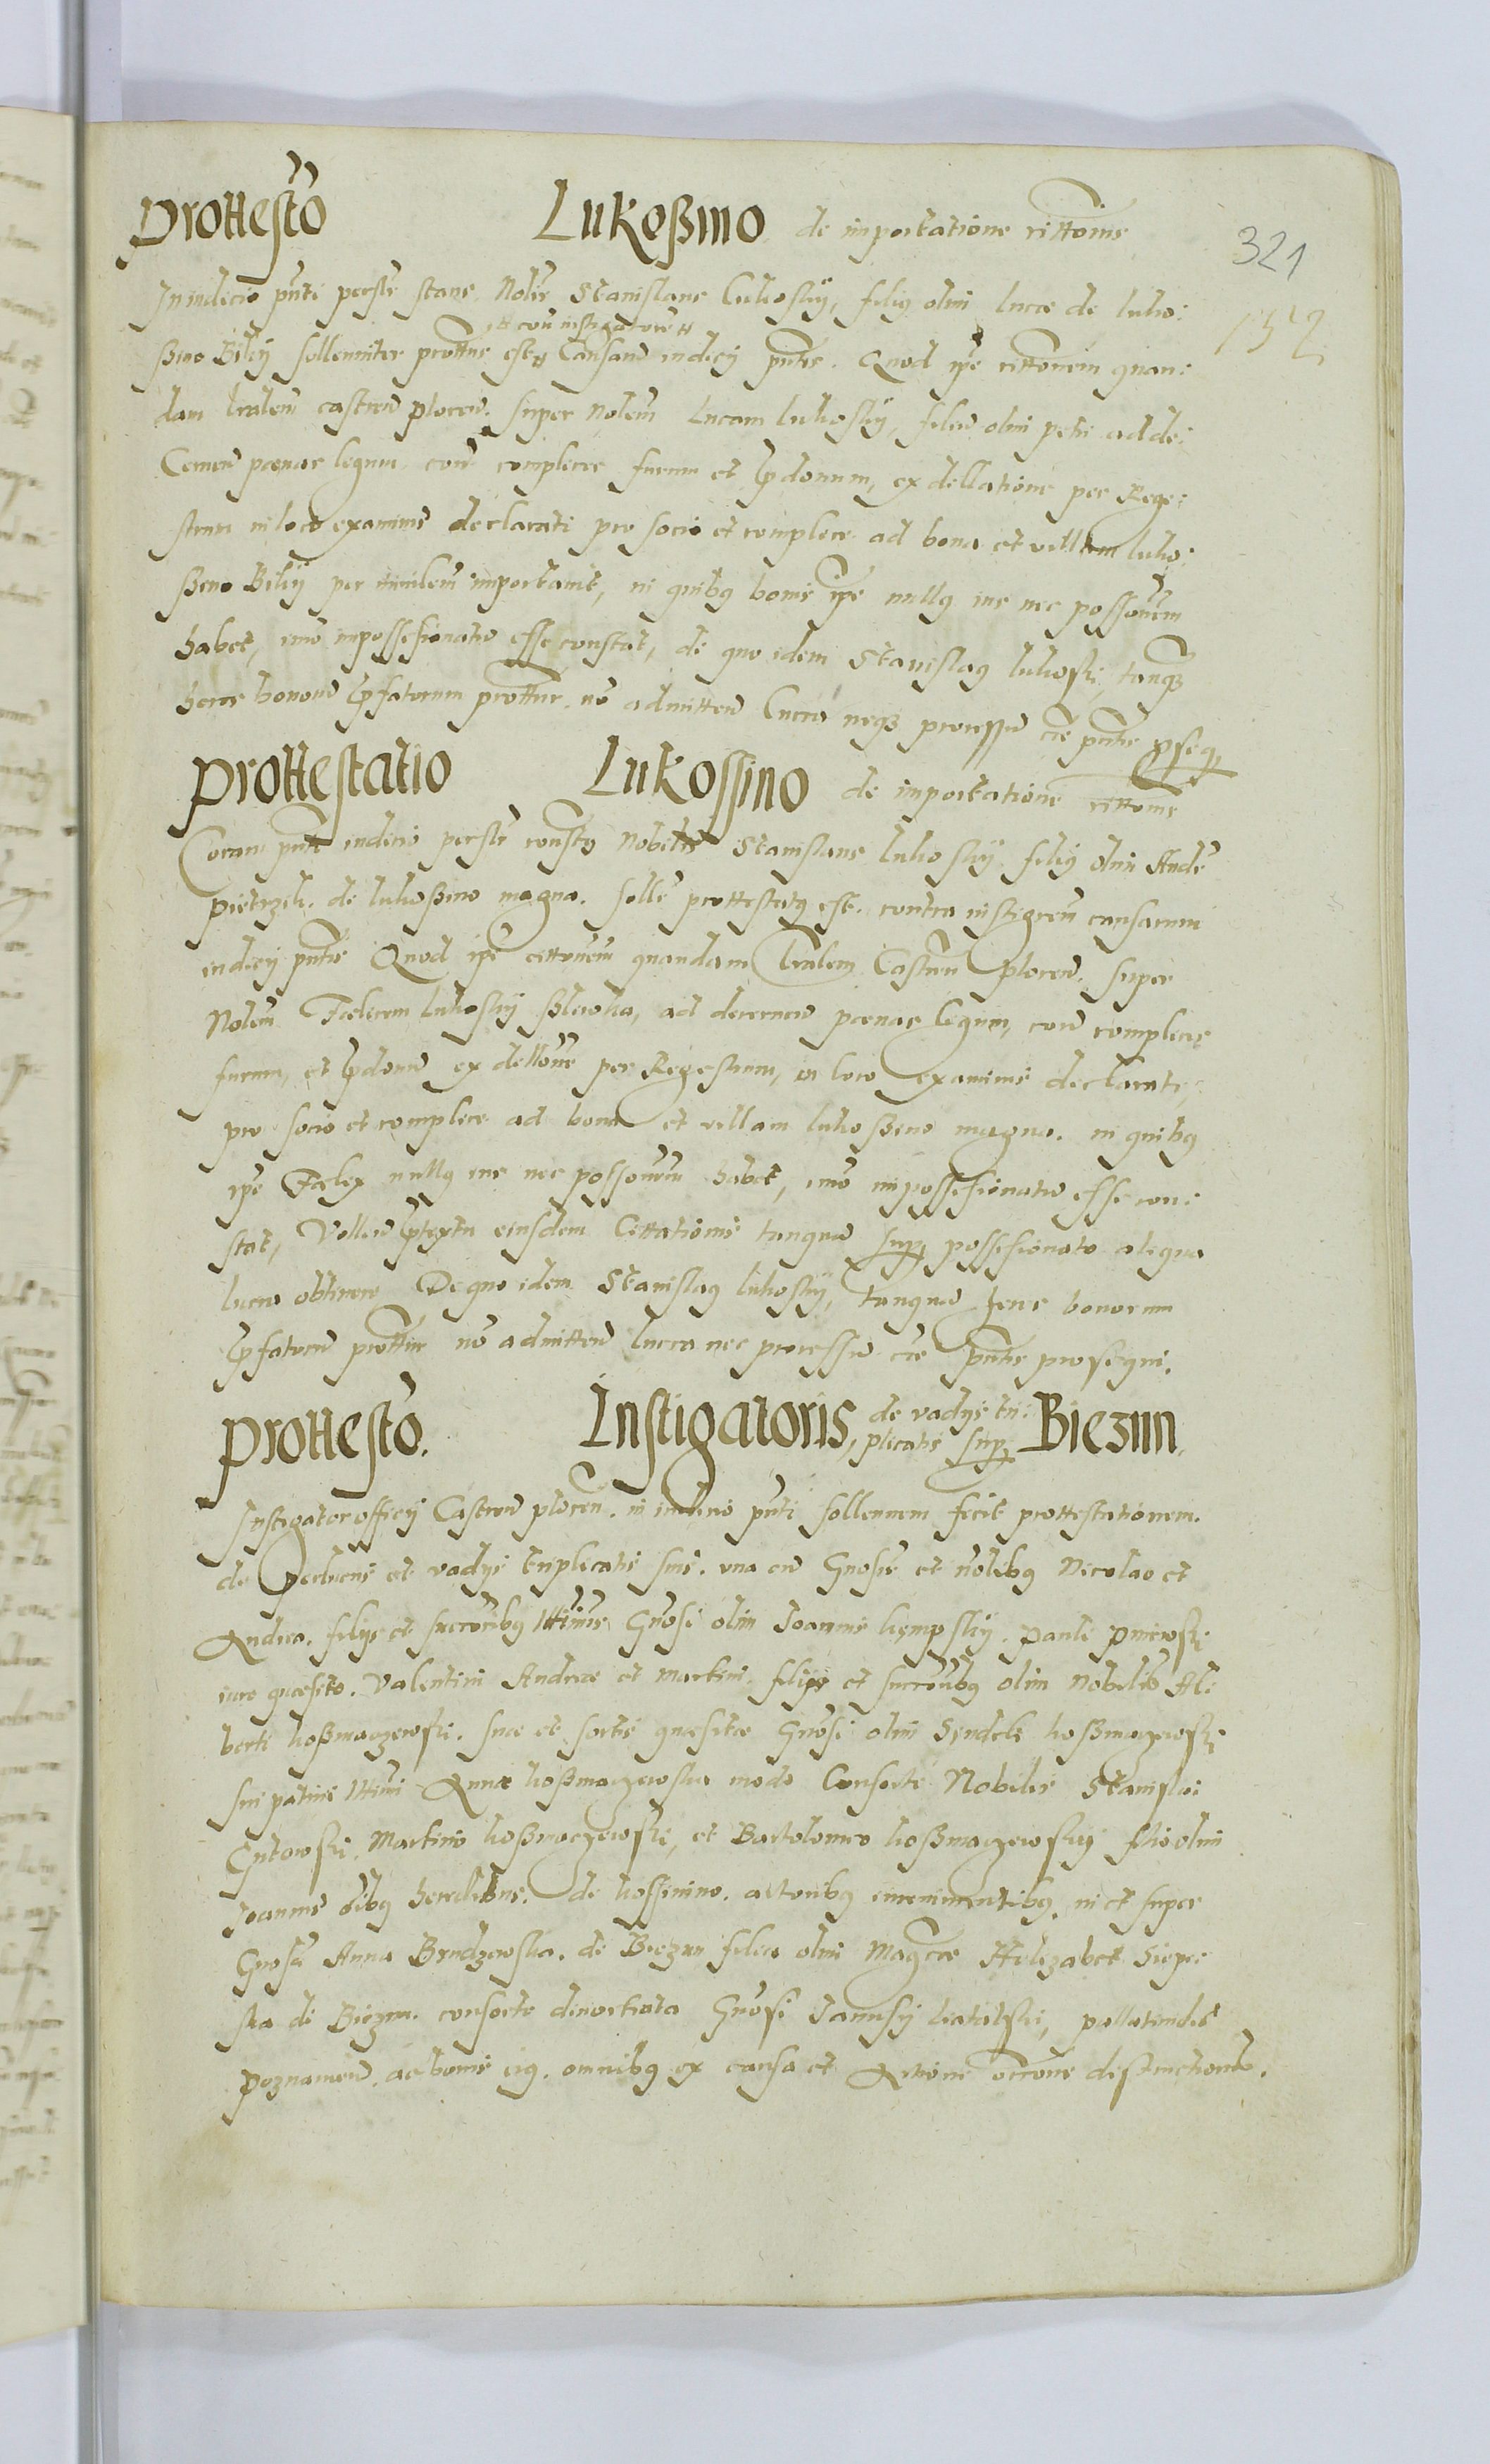 Prottesto Lukoßino de importatione cittonis
321
132
In iudicio pnti persr stans Nolis Stanislaus Lukoskÿ, filig olim lucæ de luko:
# con instigatorem #
ßino Bilij sollenniter prottus est # Causaru iudicy pntis. Quod ipe cittonem quan:
dam lralem castren plocen. super Nolem Lucam lukoskÿ, filiu olim petri ad de:
Cernen poenas legum con complices furum et pdonum, ex dellatione per Rege:
strum in loco examinis declarati pro socio et complece ad bona et villam luko:
ßeno Bilÿ per mnilem importauit, in quibg bonis ipe nullg ius nec possonem
habet, imo impossesionatu esse constat, de quo idem Stanislag lukoski, tanqz
heres bonoru pfatorum prottur. no admitten lucra neqz processu cæ pntis pseq
Prottestatio Lukossino de importatione cittonis
Coram pnti iudicio persr constg Nobilis Stanislaus lukoskÿ filig olim Andr
pietrzik. de lukoßino magno. solle prottestatg est. contra instigrem causarum
iudicy pntis Quod ipe cittonem quandam lralem Castren plocen. super
Nolem Fœlicem lukoskÿ ad decernen poenas legum, con complices
furum, et pdonu ex dellone per Regestrum, in loco examinis declarati,
pro socio et complece ad bona et villam lukoßeno magno. in quibg
ipe Fœlix nullg ius nec possonem habet, imo impossesionatu esse con:
stat, Vollen ptextu eiusdem Cittationis tanqua sup possesionato aliqua
lucra obtinere De quo idem Stanislag lukoskÿ, tanqua heres bonorum
pfatoru prottur no admitten lucra nec processu cæ pntis prosequi.
Prottesto. Instigatoris, de vadys tri: plicatis sup Biezun.
Instigator officy Castren plocen. in iudicio pnti sollennem fecit prottestationem.
de pecunis et vadys triplicatis suis. vna cu Gnosis et nolibg Nicolao et
Andrea. filys et succoribg lttimis Gnosi olim Joannis kempskÿ. Pauli pniewski
iure quæsito. Valentini Andreæ et Martini. filys et succoribg olim Nobilis Al:
berti koßmaczewski. suæ et sortis quæsitæ Gnosi olim Syndeli koßmaczewski
sui patris lttimi Annæ koßmaczewska modo Consorti Nobilis Stanislai
Gutowski, Martino koßmaczewski, et Bartolomeo koßmaczewskÿ filio olim
Joannis oibg heredibus. de kossinino. actoribg innmimentibg. in et super
Gnosa Anna Brudzewska. de Biezun filia olim Magcæ Helizabet Siepr:
ska de Biezun. consorte diuortiata Gnosi Janusy latalski, pallatinides
Poznanien. ac bonis eig. omnibg ex causa et Actione occone distinctionis.